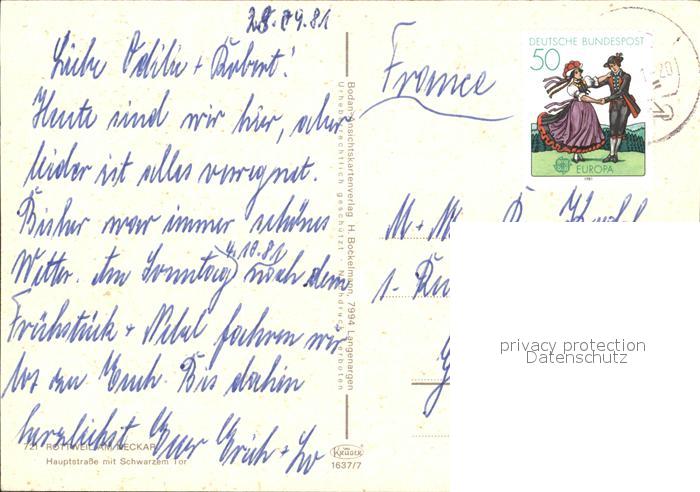 28.09.81
Liebe Odilie + Robert!
Heute sind wir hier, aber
leider ist alles verregnet.
Bisher war immer schönes
Wetter. Am Sonntag nach dem
4.10.81
Frühstück + Nebel fahren wir
los zu Euch. Bis dahin
herzlichst Euer Erich + Lo
721 ROTTWEIL AM NECKAR
Hauptstraße mit Schwarzem Tor
Bodan-Ansichtskartenverlag H. Bockelmann, 7994 Langenargen
Urheberrechtlich geschützt Nachdruck verboten
KRÜGER
1637/7
France
DEUTSCHE BUNDESPOST
50
EUROPA
1981
M + M
privacy protection
Datenschutz